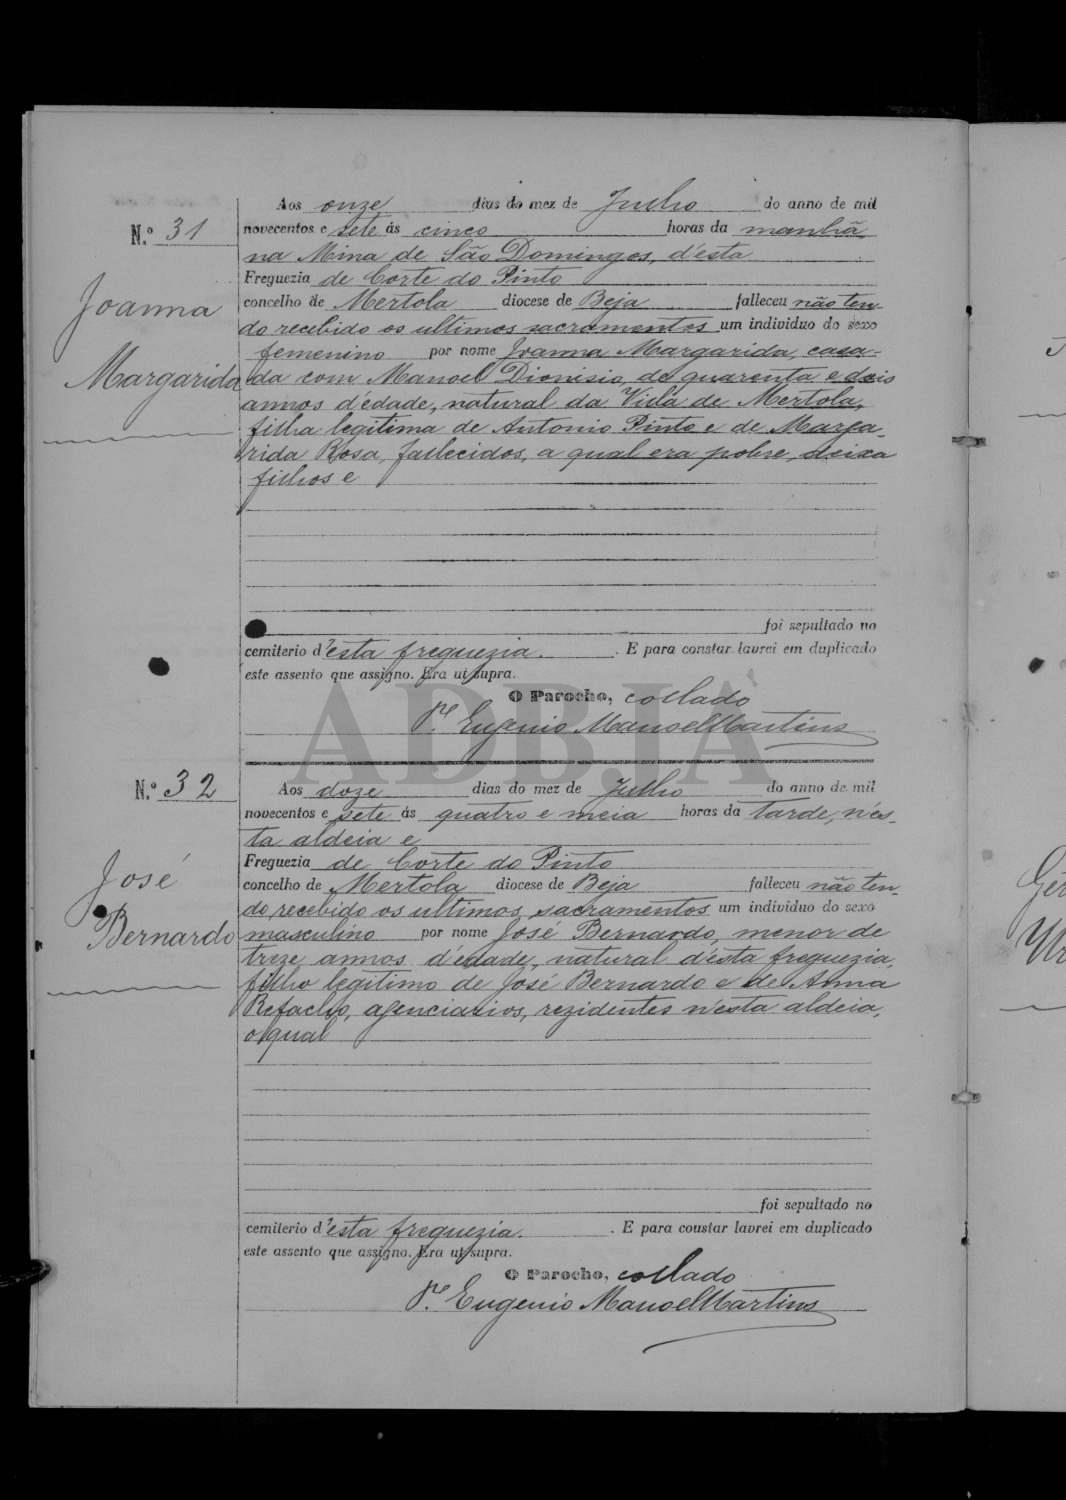 Aos onze dias do mez de Julho do anno de mil
N.º 31
novecentos e sete ás cinco horas da manhã
na Mina de São Domingos, d'esta
Freguezia de Corte do Pinto
Joanna
concelho de Mertola diocese de Beja falleceu não ten-
do recebido os ultimos sacramentos um individuo do sexo
femenino por nome Joanna Margarida, casa-
Margarida
da com Manoel Dionisio, de quarenta e dois
annos d'edade, natural da Villa de Mertola,
filha legitima de Antonio Pinto e de Marga-
rida Rosa, fallecidos, a qual era pobre, deixa
filhos e
foi sepultado no
cemiterio d'esta freguezia. E para constar lavrei em duplicado
este assento que assigno. Era ut supra.
O Parocho, collado
P.e Eugenio Manoel Martins
ADBJA
N.º 32
Aos doze dias do mez de Julho do anno de mil
novecentos e sete ás quatro e meia horas da tarde, n'es-
ta aldeia e
Freguezia de Corte do Pinto
José
concelho de Mertola diocese de Beja falleceu não ten-
do recebido os ultimos sacramentos um individuo do sexo
Bernardo
masculino por nome José Bernardo, menor de
treze annos d'edade, natural d'esta freguezia,
filho legitimo de José Bernardo e de Anna
Refacho, agenciarios, rezidentes n'esta aldeia,
o qual
foi sepultado no
cemiterio d'esta freguezia. E para constar lavrei em duplicado
este assento que assigno. Era ut supra.
O Parocho, collado
P.e Eugenio Manoel Martins